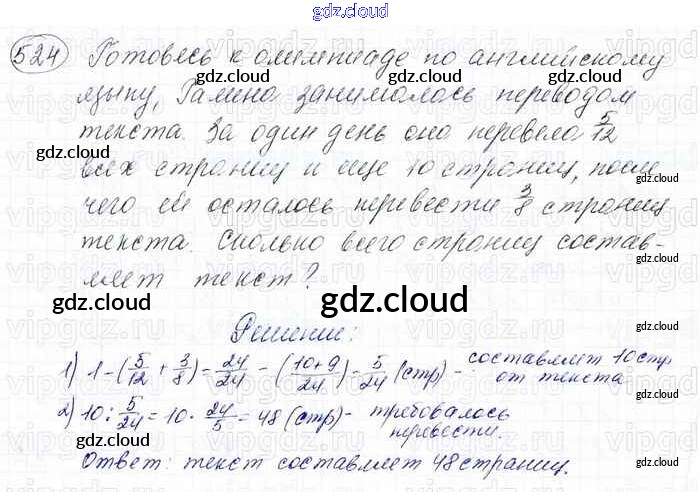 gdz.cloud
524 Готовясь к олимпиаде по английскому
gdz.cloud gdz.cloud gdz.cloud
языку, Галина занималась переводом
текста. За один день она перевела 5/12
gdz.cloud
всех страниц и еще 10 страниц, после
gdz.cloud
чего ей осталось перевести 3/8 страниц
gdz.cloud
текста. Сколько всего страниц состав-
ляет текст?
gdz.cloud gdz.cloud gdz.cloud
Решение:
gdz.cloud
1) 1-(5/12 + 3/8)= 24/24 - (10+9/24)= 5/24 (стр) - составляет 10 стр
от текста
gdz.cloud gdz.cloud
2) 10 : 5/24 = 10 · 24/5 = 48 (стр)- требовалось
перевести.
gdz.cloud gdz.cloud gdz.cloud
Ответ: текст составляет 48 страниц.
gdz.cloud